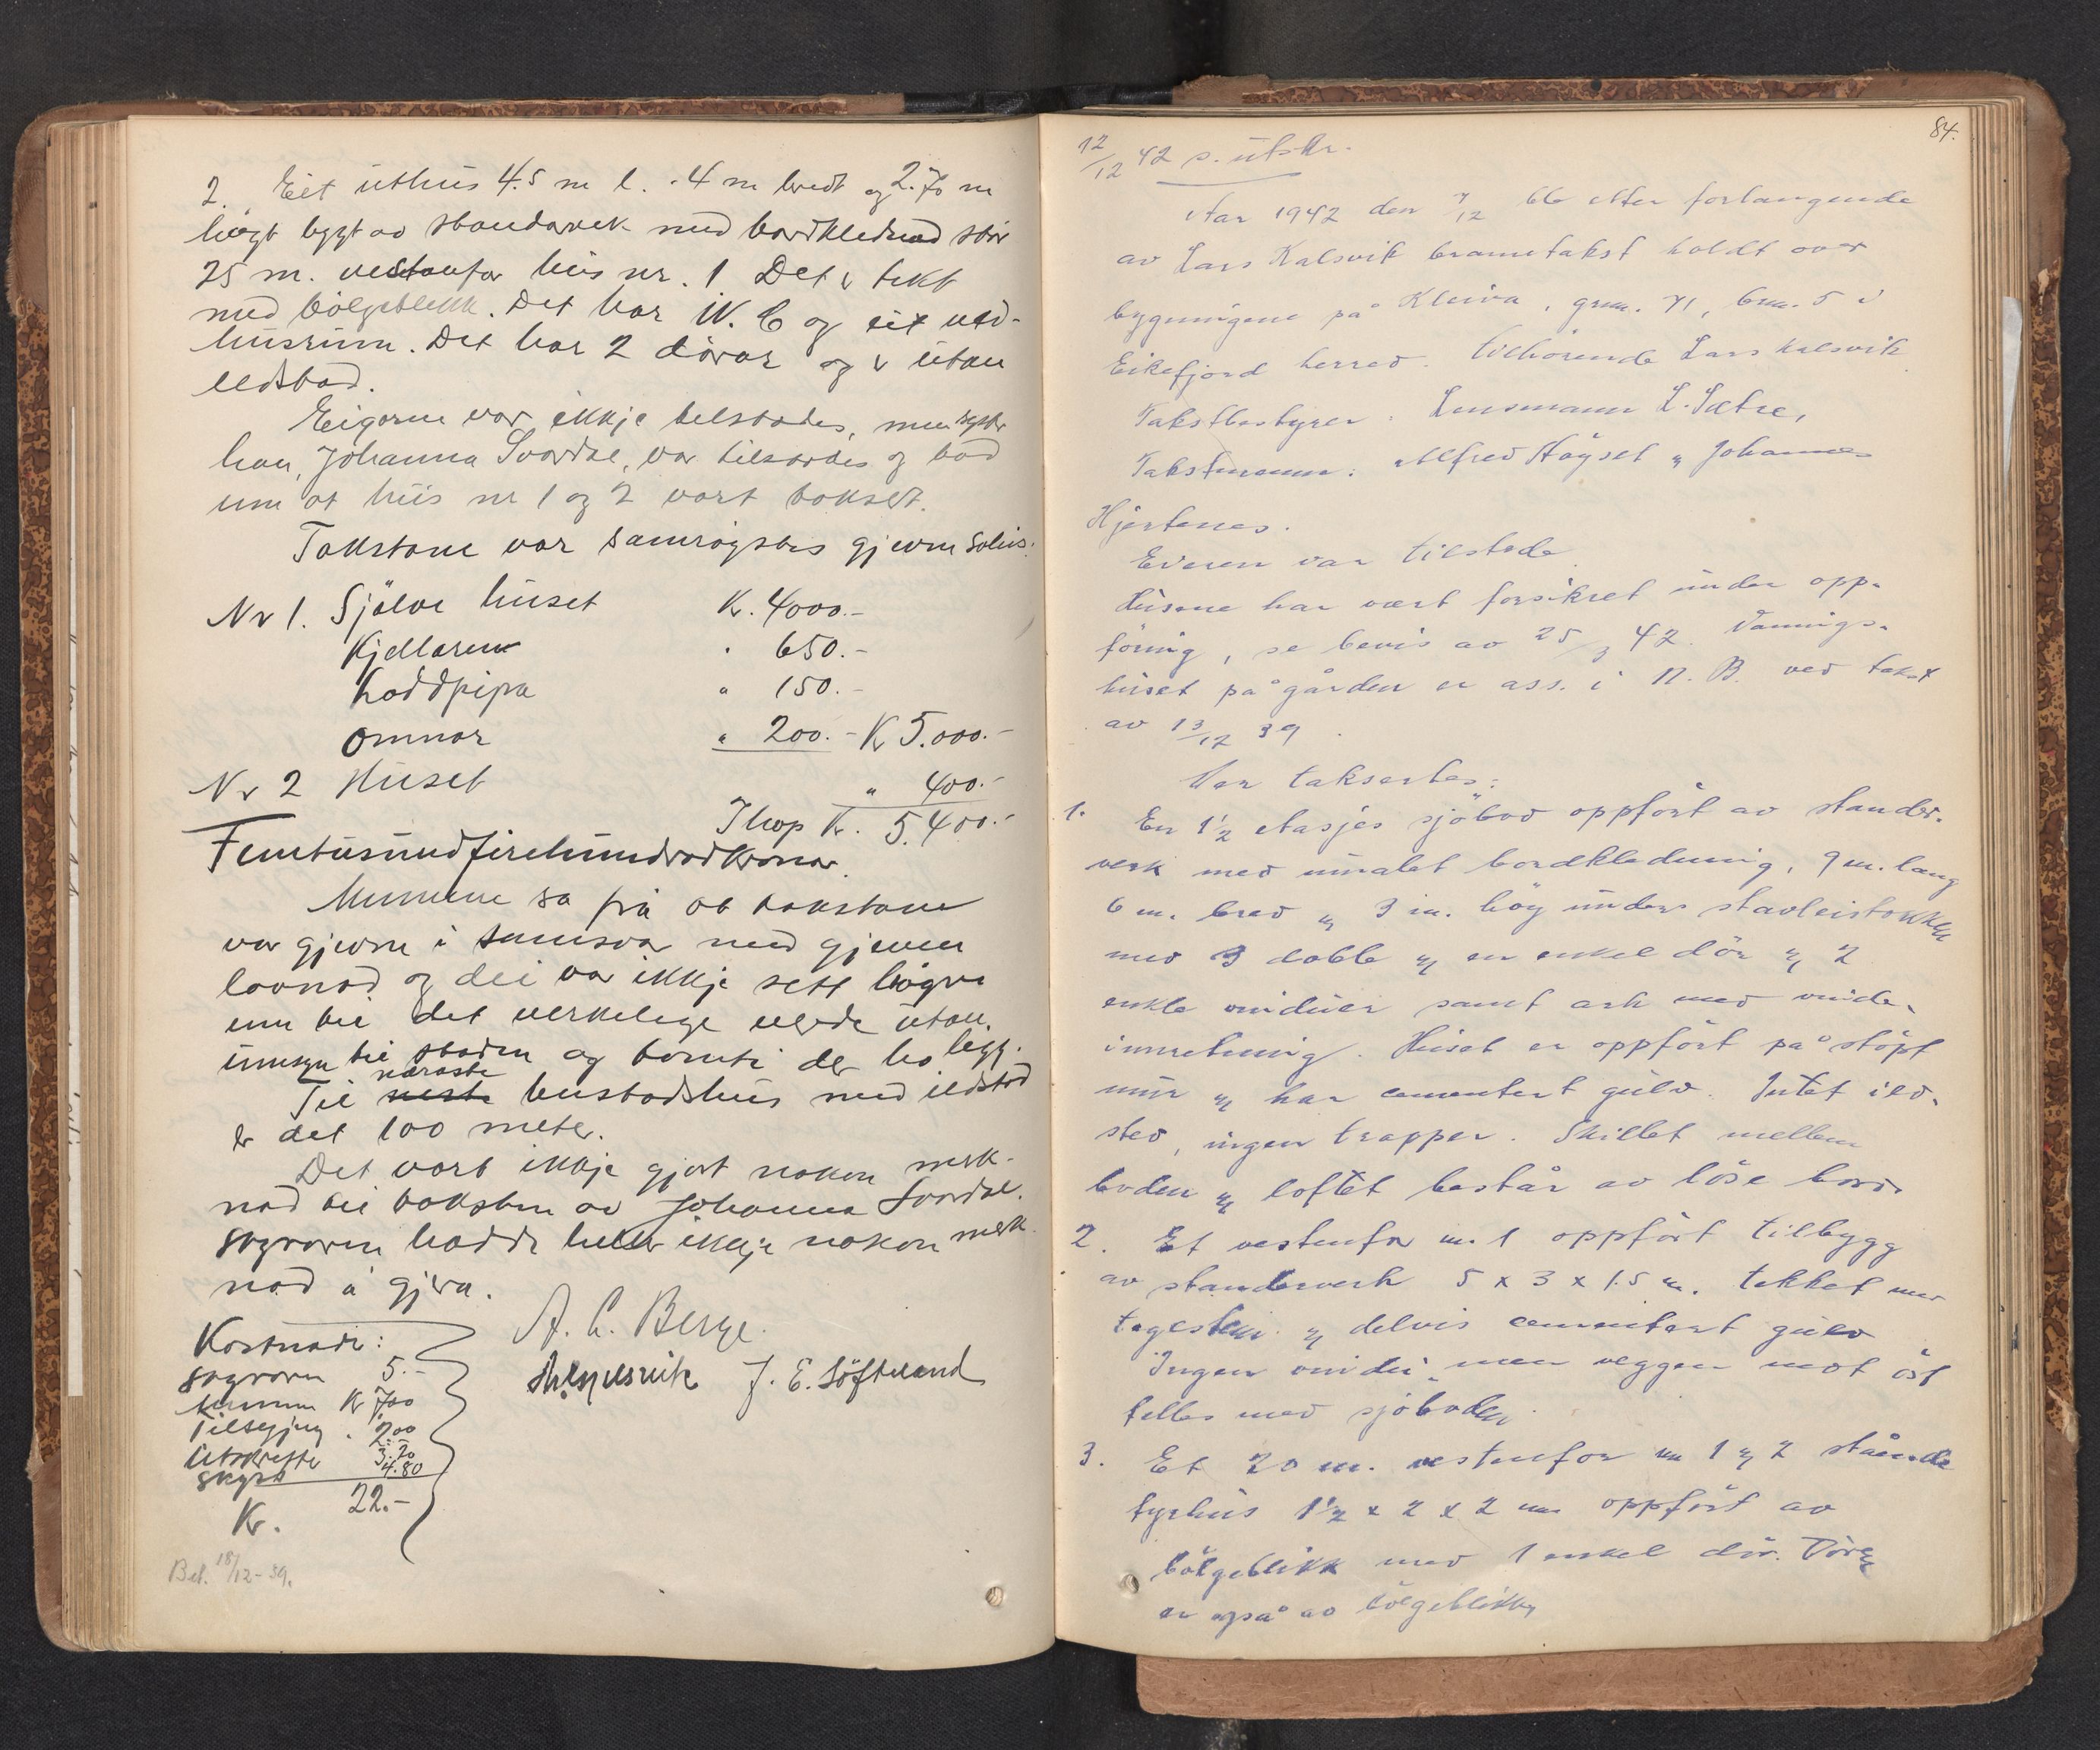 2. Eit uthus 4.5 m l. 4 m bredt og 2.70 m
høgt bygt av standarverk med bordklednad står
25 m. vestanfor hus nr. 1 Det er tekt
med bølgeblekk. Det har W.C og eit ved-
husrum. Det har 2 dörar og er utan
eldstad.
Eigaren var ikkje tilstades, men syster
han, Johanna Svardal, var tilstades og bad
um at hus nr 1 og 2 vart taksert.
Takstane var samrøystes gjevne soleis:
Nr 1. Sjölve huset Kr. 4000.-
Kjellaren " 650.-
Loddpipa " 150.-
Omnar " 200.- Kr 5.000.-
Nr 2 Huset " 400.-
Ihop Kr. 5.400.-
Femtusundfirehundradkronar.
Mennene sa frå at takstane
var gjevne i samsvar med gjeven
lovnad og dei var ikkje sett högre
enn til det verkelege verde utan
umsyn til staden og tomti der ho ligg.
Til næraste bustadshus med eldstad
er det 100 meter.
Det vart ikkje gjort nokon merk-
nad til taksten av Johanna Svardal.
Skrivaren hadde heller ikkje nokon merk-
nad å gjera.
Kostnadr:
A. L. Berge.
5.-
J. E. Söfteland
Kr 7.00
Tilsegjing " 2.00
Utskrifter 3.20
Skyss 4.80
Kr. 22.-
Bet. 18/12-39.
84.
12/12 42 s. utskr.
Aar 1942 den 7/12 ble etter forlangende
av Lars Kalsvik branntakst holdt over
bygningene på Kleiva, grnr. 71, brnr. 5 i
Eikefjord herred. tilhörende Lars Kalsvik
Takstbestyrer: Lensmann L. Sætre,
Takstmenn: Alfred Høyset og Johannes
Hjertenes.
Eieren var tilstede
Husene har vært forsikret under opp-
föring, se bevis av 25/3 42. Vaanings-
huset på gården er ass. i N. B. ved takst
av 13/12 39.
Var takserbes:
1. En 1½ etasjes sjöbod oppfört av stender-
verk med umalet bordkledning, 9 m. lang
6 m. bred og 3 m. höy under stavleistokken
med 3 doble og en enkel dör og 2
enkle vinduer samt ark med vinde-
innretning. Huset er oppfört på stöpt
mur og har cementert gulv. Intet ild-
sted, ingen trapper. Skillet mellem
boden og loftet består av löse bord.
2. Et vestenfor nr. 1 oppfört tilbygg
av stenderverk 5 x 3 x 1.5 m. tekket med
taglstein og delvis cementert gulv
Ingen vindu, men veggen mot öst
felles med sjöboden.
3. Et 20 m. vestenfor nr 1 og 2 stående
fyrhus 1½ x 2 x 2 m oppfört av
bölgeblikk med 1 enkel dör. Dören
er også av bölgeblikk